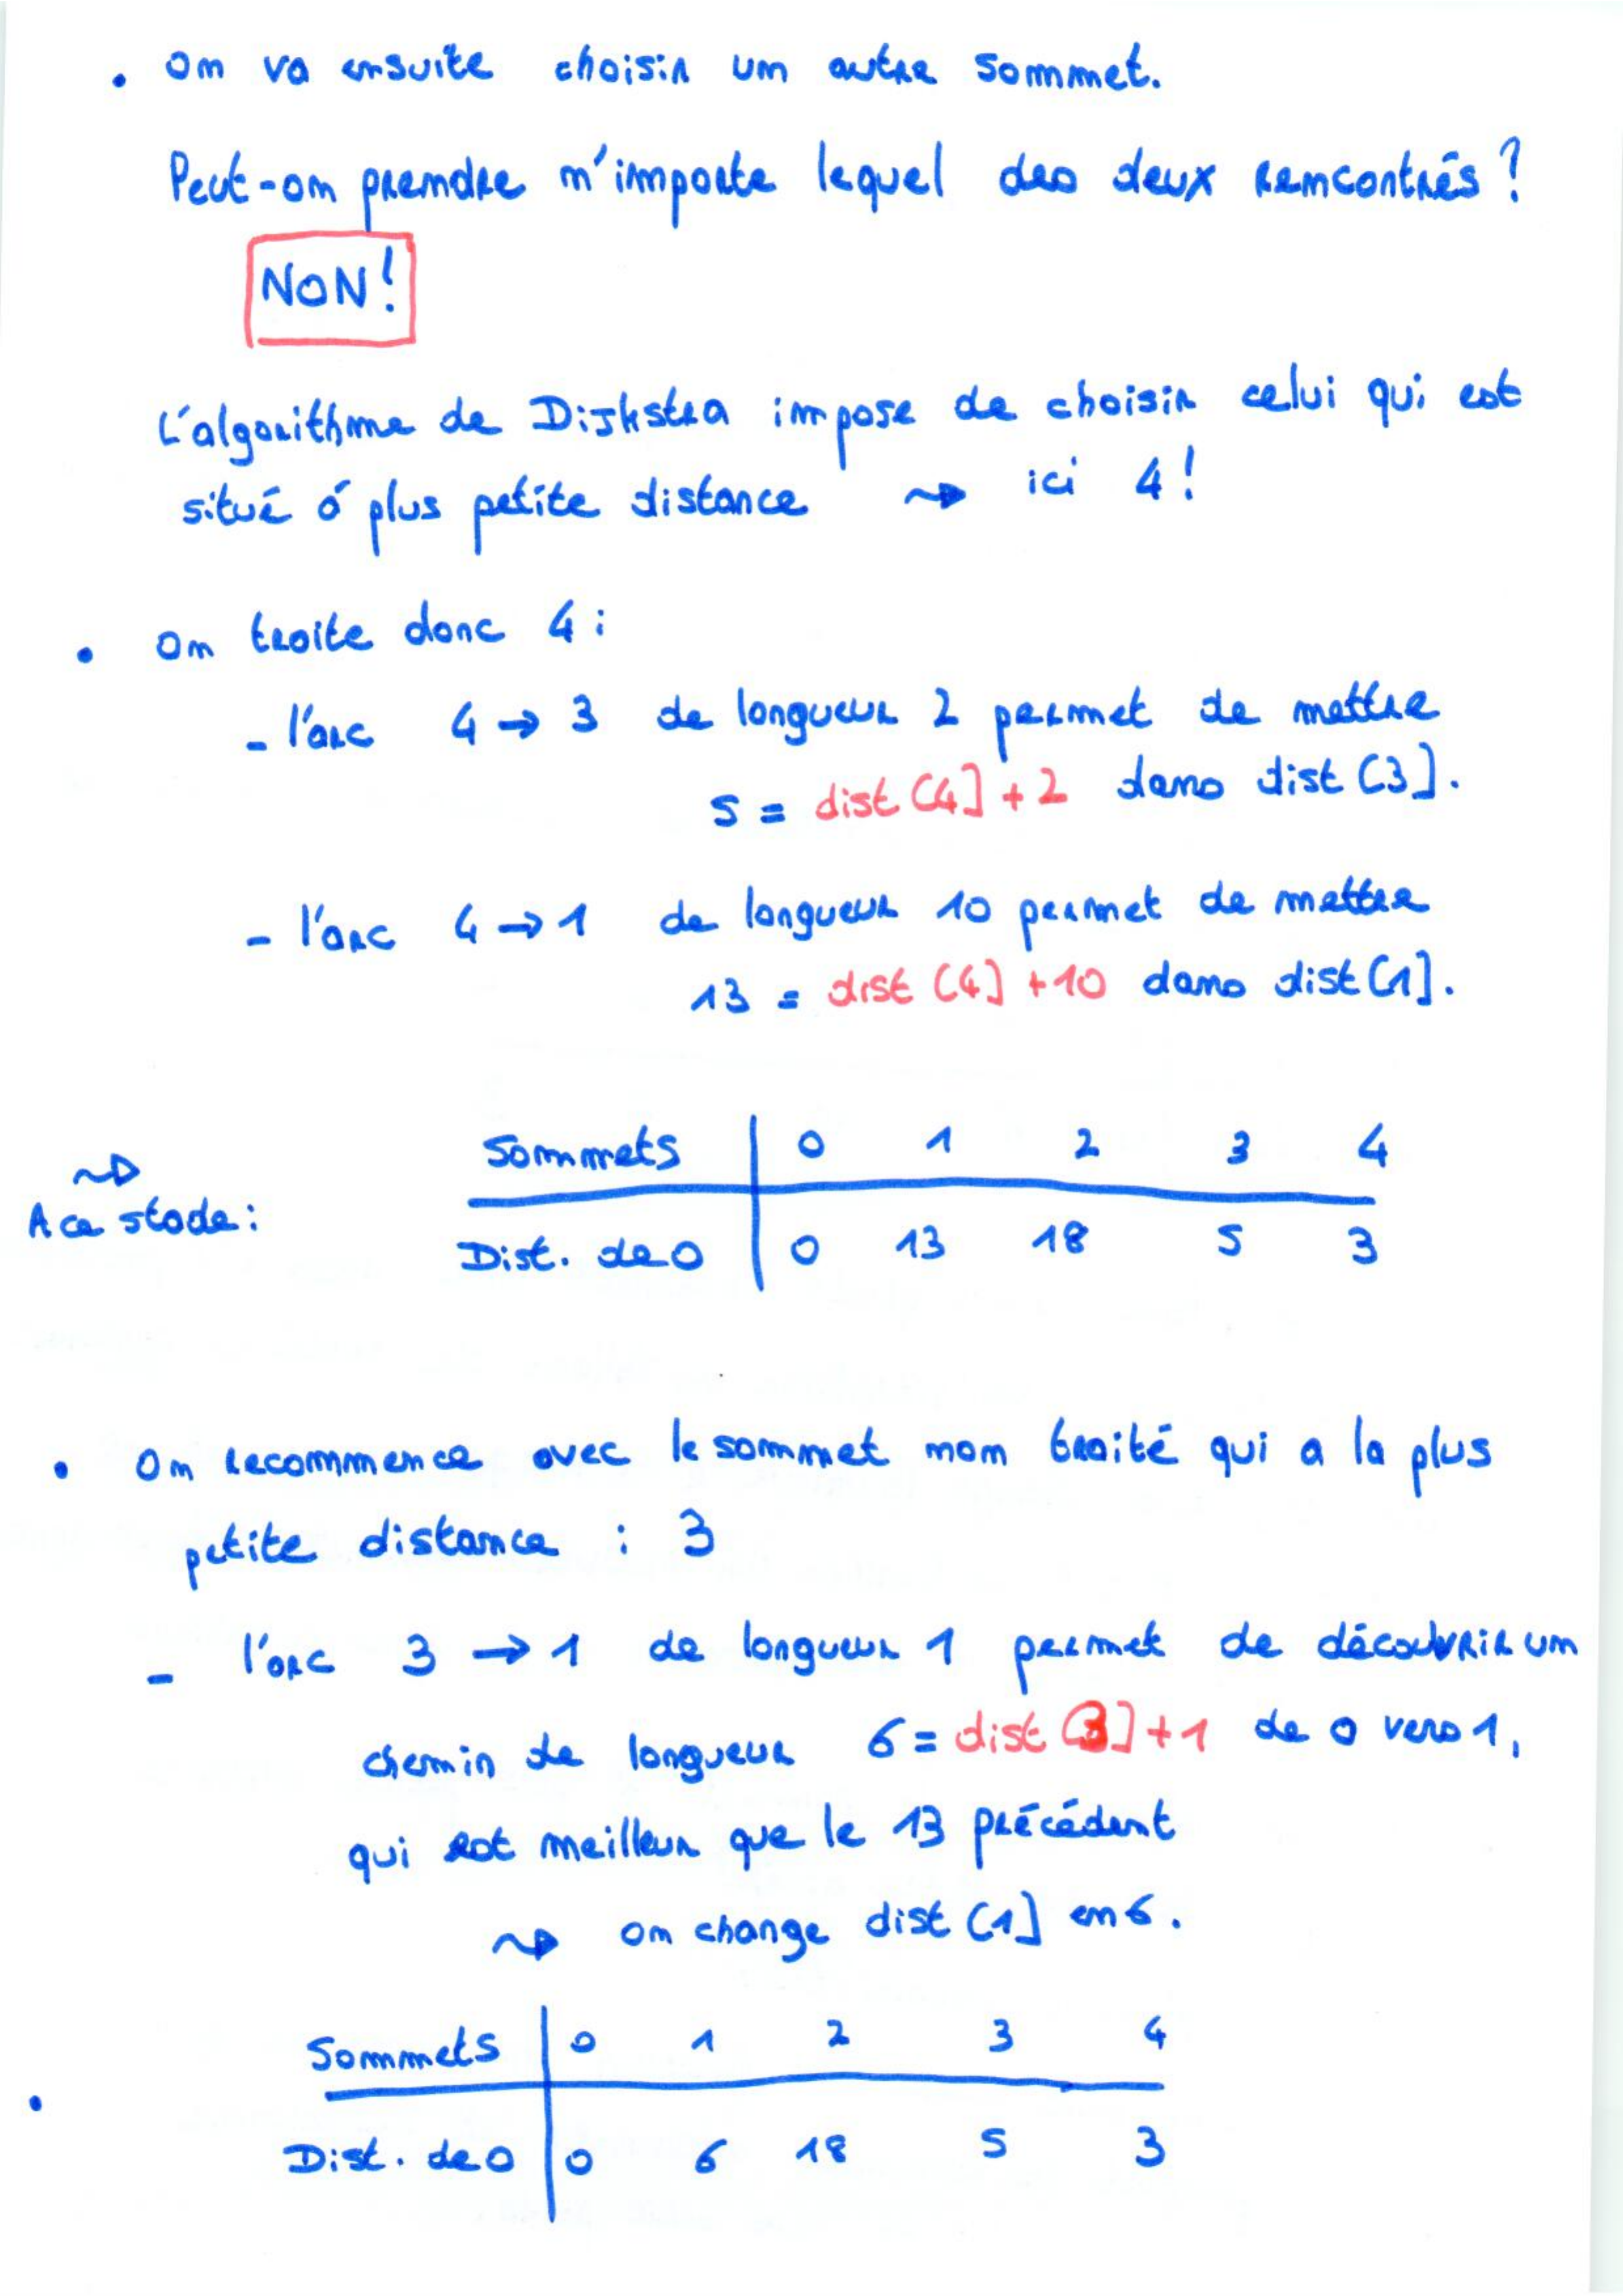 • On va ensuite choisir un autre sommet.
Peut-on prendre n'importe lequel des deux rencontrés ?
NON !
L'algorithme de Dijkstra impose de choisir celui qui est
situé à plus petite distance ⇝ ici 4 !
• On traite donc 4 :
- l'arc 4 → 3 de longueur 2 permet de mettre
5 = dist [4] + 2 dans dist [3].
- l'arc 4 → 1 de longueur 10 permet de mettre
13 = dist [4] + 10 dans dist [1].
⇝
A ce stade :
Sommets 0 1 2 3 4
Dist. de 0 0 13 18 5 3
• On recommence avec le sommet non traité qui a la plus
petite distance : 3
- l'arc 3 → 1 de longueur 1 permet de découvrir un
chemin de longueur 6 = dist [3] + 1 de 0 vers 1,
qui est meilleur que le 13 précédent
⇝ on change dist [1] en 6.
Sommets 0 1 2 3 4
•
Dist. de 0 0 6 18 5 3